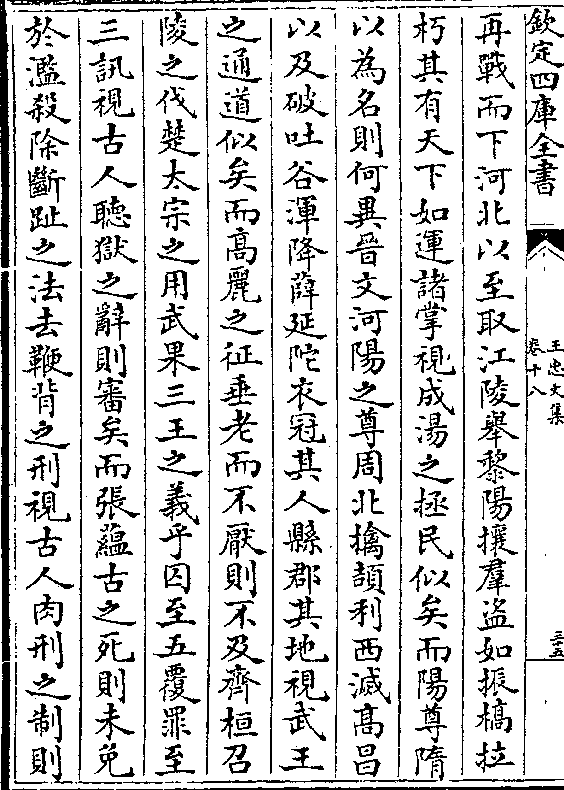 欽定四庫全書
王忠文集
卷十八
三十五
再戰而下河北以至取江陵舉黎陽攘羣盜如振槁拉
朽其有天下如運諸掌視成湯之拯民似矣而陽尊隋
以為名則何異晉文河陽之尊周北擒頡利西滅高昌
以及破吐谷渾降薛延陀衣冠其人縣郡其地視武王
之通道似矣而高麗之征垂老而不厭則不及齊桓召
陵之伐楚太宗之用武果三王之義乎囚至五覆罪至
三訊視古人聽獄之辭則審矣而張蘊古之死則未免
於濫殺除斷趾之法去鞭背之刑視古人肉刑之制則